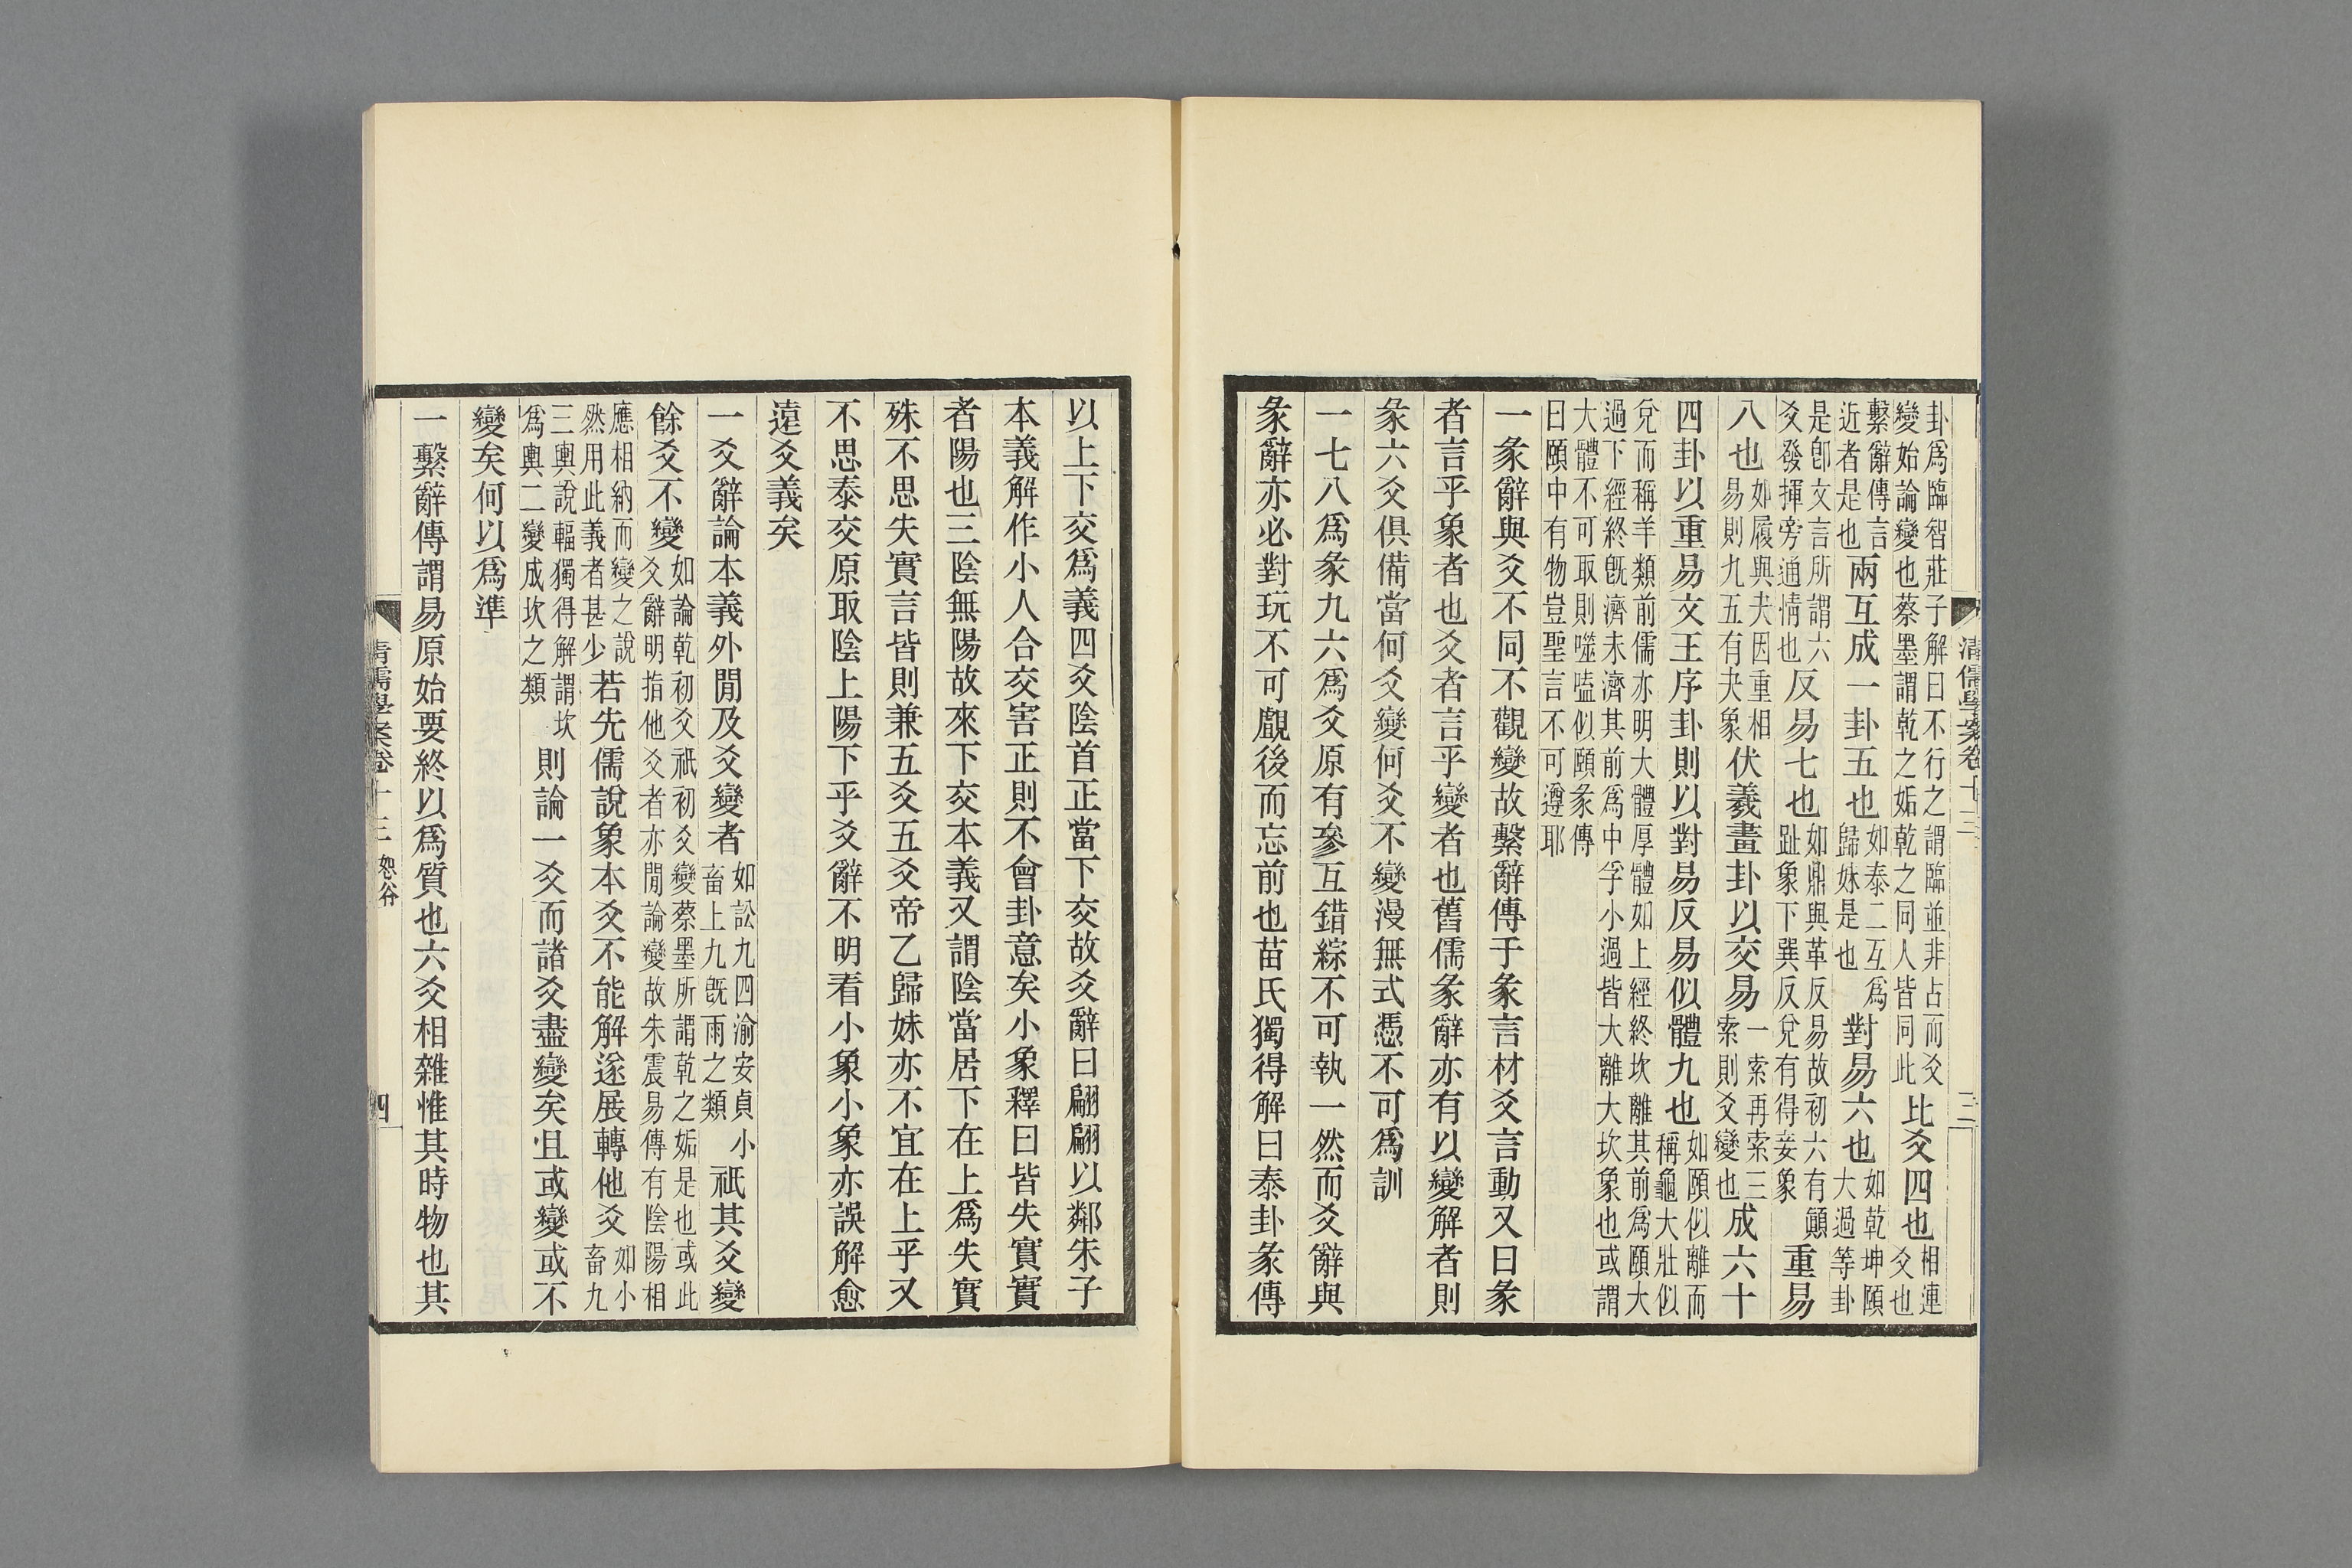 卦爲臨智莊子解曰不行之謂臨並非占而爻
變始論變也蔡墨謂乾之姤乾之同人皆同此
比爻四也
相連
爻也
繫辭傳言
近者是也
兩互成一卦五也
如泰二互爲
歸妹是也
對易六也
如乾坤頤
大過等卦
是卽文言所謂六
爻發揮旁通情也
反易七也
如鼎與革反易故初六有顚
趾象下巽反兌有得妾象
重易
八也
如履與夬因重相
易則九五有夬象
伏羲畫卦以交易
一索再索三
索則爻變也
成六十
四卦以重易文王序卦則以對易反易似體九也
如頤似離而
稱龜大壯似
兌而稱羊類前儒亦明大體厚體如上經終坎離其前爲頤大
過下經終旣濟未濟其前爲中孚小過皆大離大坎象也或謂
大體不可取則噬嗑似頤彖傳
曰頤中有物豈聖言不可遵耶
一彖辭與爻不同不觀變故繫辭傳于彖言材爻言動又曰彖
者言乎象者也爻者言乎變者也舊儒彖辭亦有以變解者則
彖六爻俱備當何爻變何爻不變漫無式憑不可爲訓
一七八爲彖九六爲爻原有參互錯綜不可執一然而爻辭與
彖辭亦必對玩不可覰後而忘前也苗氏獨得解曰泰卦彖傳
清儒學案卷十三
三
以上下交爲義四爻陰首正當下交故爻辭曰翩翩以鄰朱子
本義解作小人合交害正則不會卦意矣小象釋曰皆失實實
者陽也三陰無陽故來下交本義又謂陰當居下在上爲失實
殊不思失實言皆則兼五爻五爻帝乙歸妹亦不宜在上乎又
不思泰交原取陰上陽下乎爻辭不明看小象小象亦誤解愈
遠爻義矣
一爻辭論本義外閒及爻變者
如訟九四渝安貞小
畜上九旣雨之類
祇其爻變
餘爻不變
如論乾初爻祇初爻變蔡墨所謂乾之姤是也或此
爻辭明指他爻者亦閒論變故朱震易傳有陰陽相
應相納而變之說
然用此義者甚少
若先儒說象本爻不能解遂展轉他爻
如小
畜九
三輿說輻獨得解謂坎
爲輿二變成坎之類
則論一爻而諸爻盡變矣且或變或不
變矣何以爲準
一繫辭傳謂易原始要終以爲質也六爻相雜惟其時物也其
清儒學案卷十三
恕谷
四